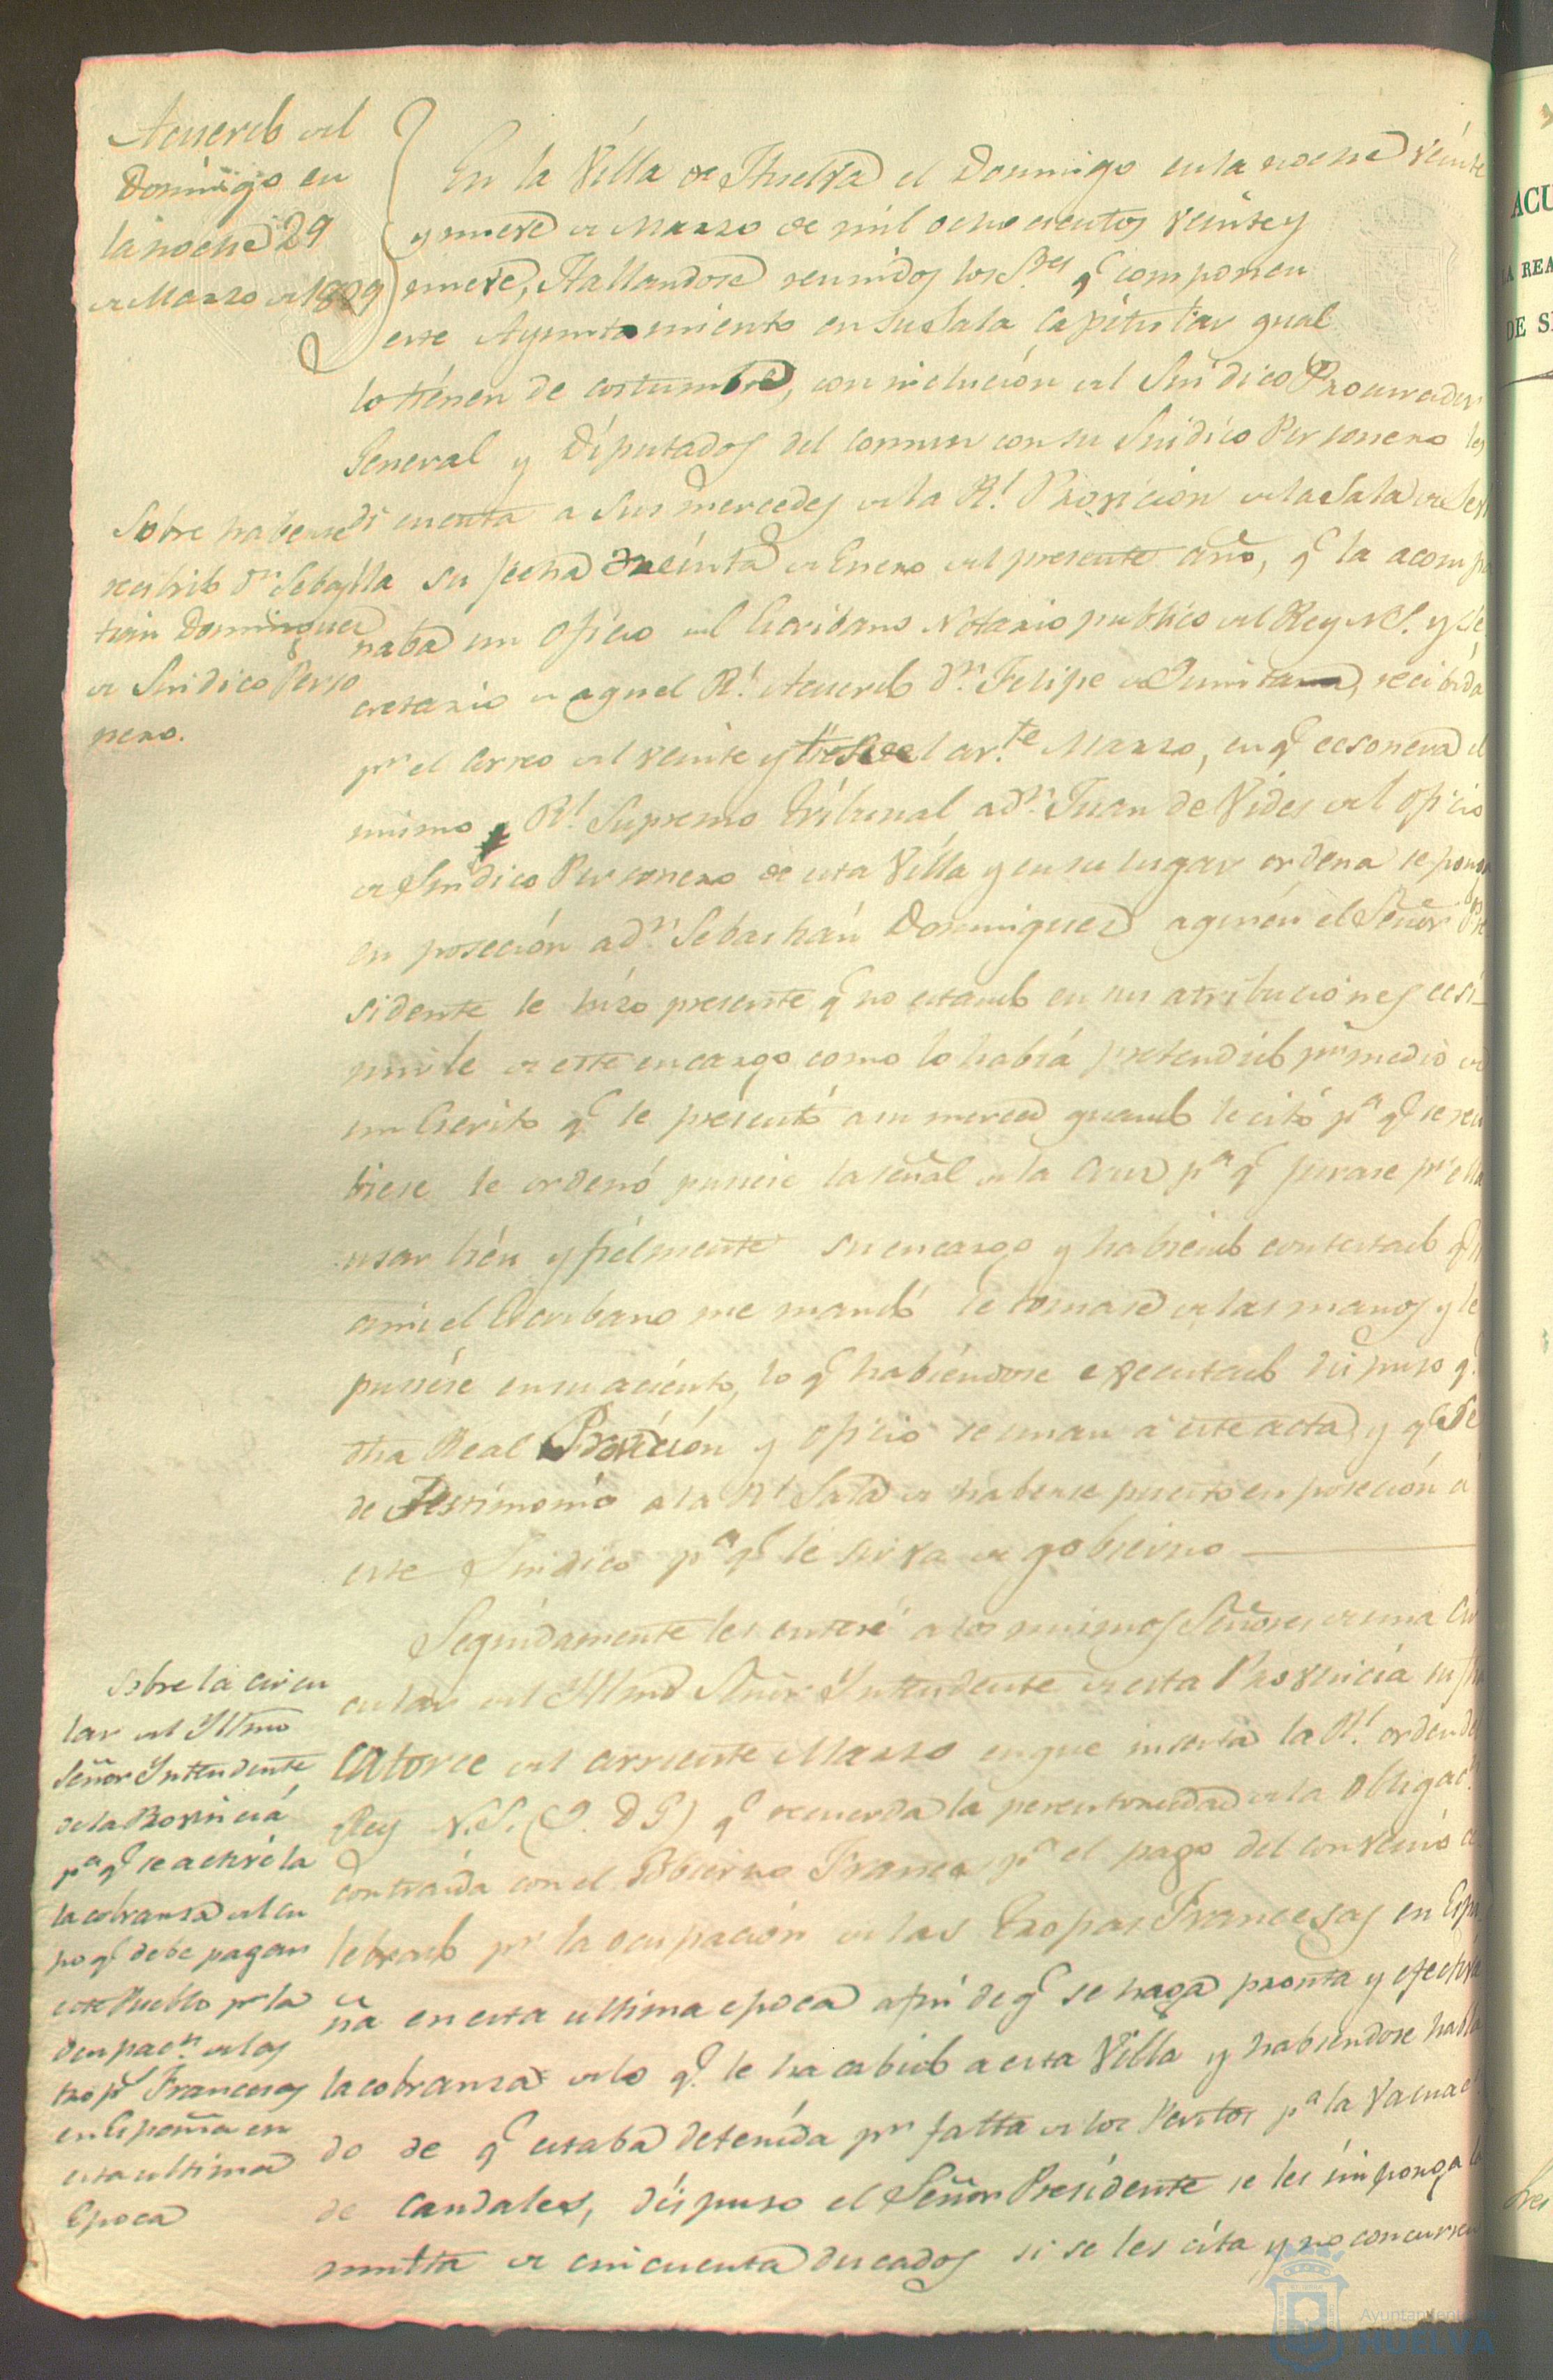 Acuerdo del
Domingo en
la noche 29
de Marzo de 1829
En la Villa de Huelva el Domingo en la noche veinte
y nueve de Marzo de mil ochocientos veinte y
nueve, Hallandose reunidos los S.res q.e componen
este Ayuntamiento en su Sala Capitular qual
lo tienen de costumbre, con inclución del Sindico Procurador
General y Diputados del comun con su Sindico Personero les
di cuenta a sus mercedes de la R.l Provicion de la Sala de Sevi
lla su fecha treinta de Enero del presente año, q.e la acompa
ñaba un oficio del Escribano Notario publico del Rey N.S. y Se
cretario de aquel R.l Acuerdo D.n Felipe de Quintana, recibida
p.r el Correo del veinte y tres del cor.te Marzo, en q.e ecsonera el
mismo R.l Supremo Tribunal a D.n Juan de Vides del oficio
de Sindico Personero de esta Villa y en su lugar ordena se ponga
en poseción a D.n Sebastián Dominguez a quién el Señor Pre
sidente le hizo presente q.e no estando en sus atribuciones ecsi-
mirle de este encargo como lo habiá pretendido p.r medio de
un Escrito q.e le presentó a su merced quando le citó p.a q.e se reci
biese le ordenó pusiese la señal de la Cruz p.a q.e jurase p.r ella
usar bién y fiélmente su encargo y habiendo contestado q.e
a mi el Escribano me mandó le tomase de las manos y le
pusiése en su aciénto, lo q.e habiéndose executado dispuso q.e
dha Real Provición y oficio se unan a este acta, y q.e se
de Testimonio a la R.l Sala de haberse puesto en poseción a
este Sindico p.a q.e le sirva de gobierno
Sobre haberse
recibido D.n Sebas
tian Dominguez
de Sindico Perso
nero.
Seguidamente les enteré a los mismos Señores de una Cir
cular del Yltmo Señor Yntendente de esta Provincia su fha
catorce del corriente Marzo en que inserta la R.l orden del
Rey N.S. (Q. D G) q.e recuerda la perentoriedad de la obligac.n
contraida con el Gobierno Frances p.a el pago del convenio ce
lebrado p.r la ocupación de las Tropas Francesas en Espa
ña en esta ultima epoca a fin de q.e se haga pronta y efectiva
la cobranza de lo q.e le ha cabido a esta Villa y habiendose habla
do de q.e estaba detenida p.r falta de los Peritos p.a la Valuac.n
de caudales, dispuso el Señor Presidente se les imponga la
multa de cincuenta ducados si se les cita y no concurren
Sobre la circu
lar del Yltmo
Señor Yntendente
de la Provincia
p.a q.e se active la
la cobranza del cu
po q.e debe pagar
este Pueblo p.r la
ocupac.n de las
trop.s Francesas
en España en
esta ultima
Epoca
ACU
REA
DE S
Ayuntamiento
HUELVA